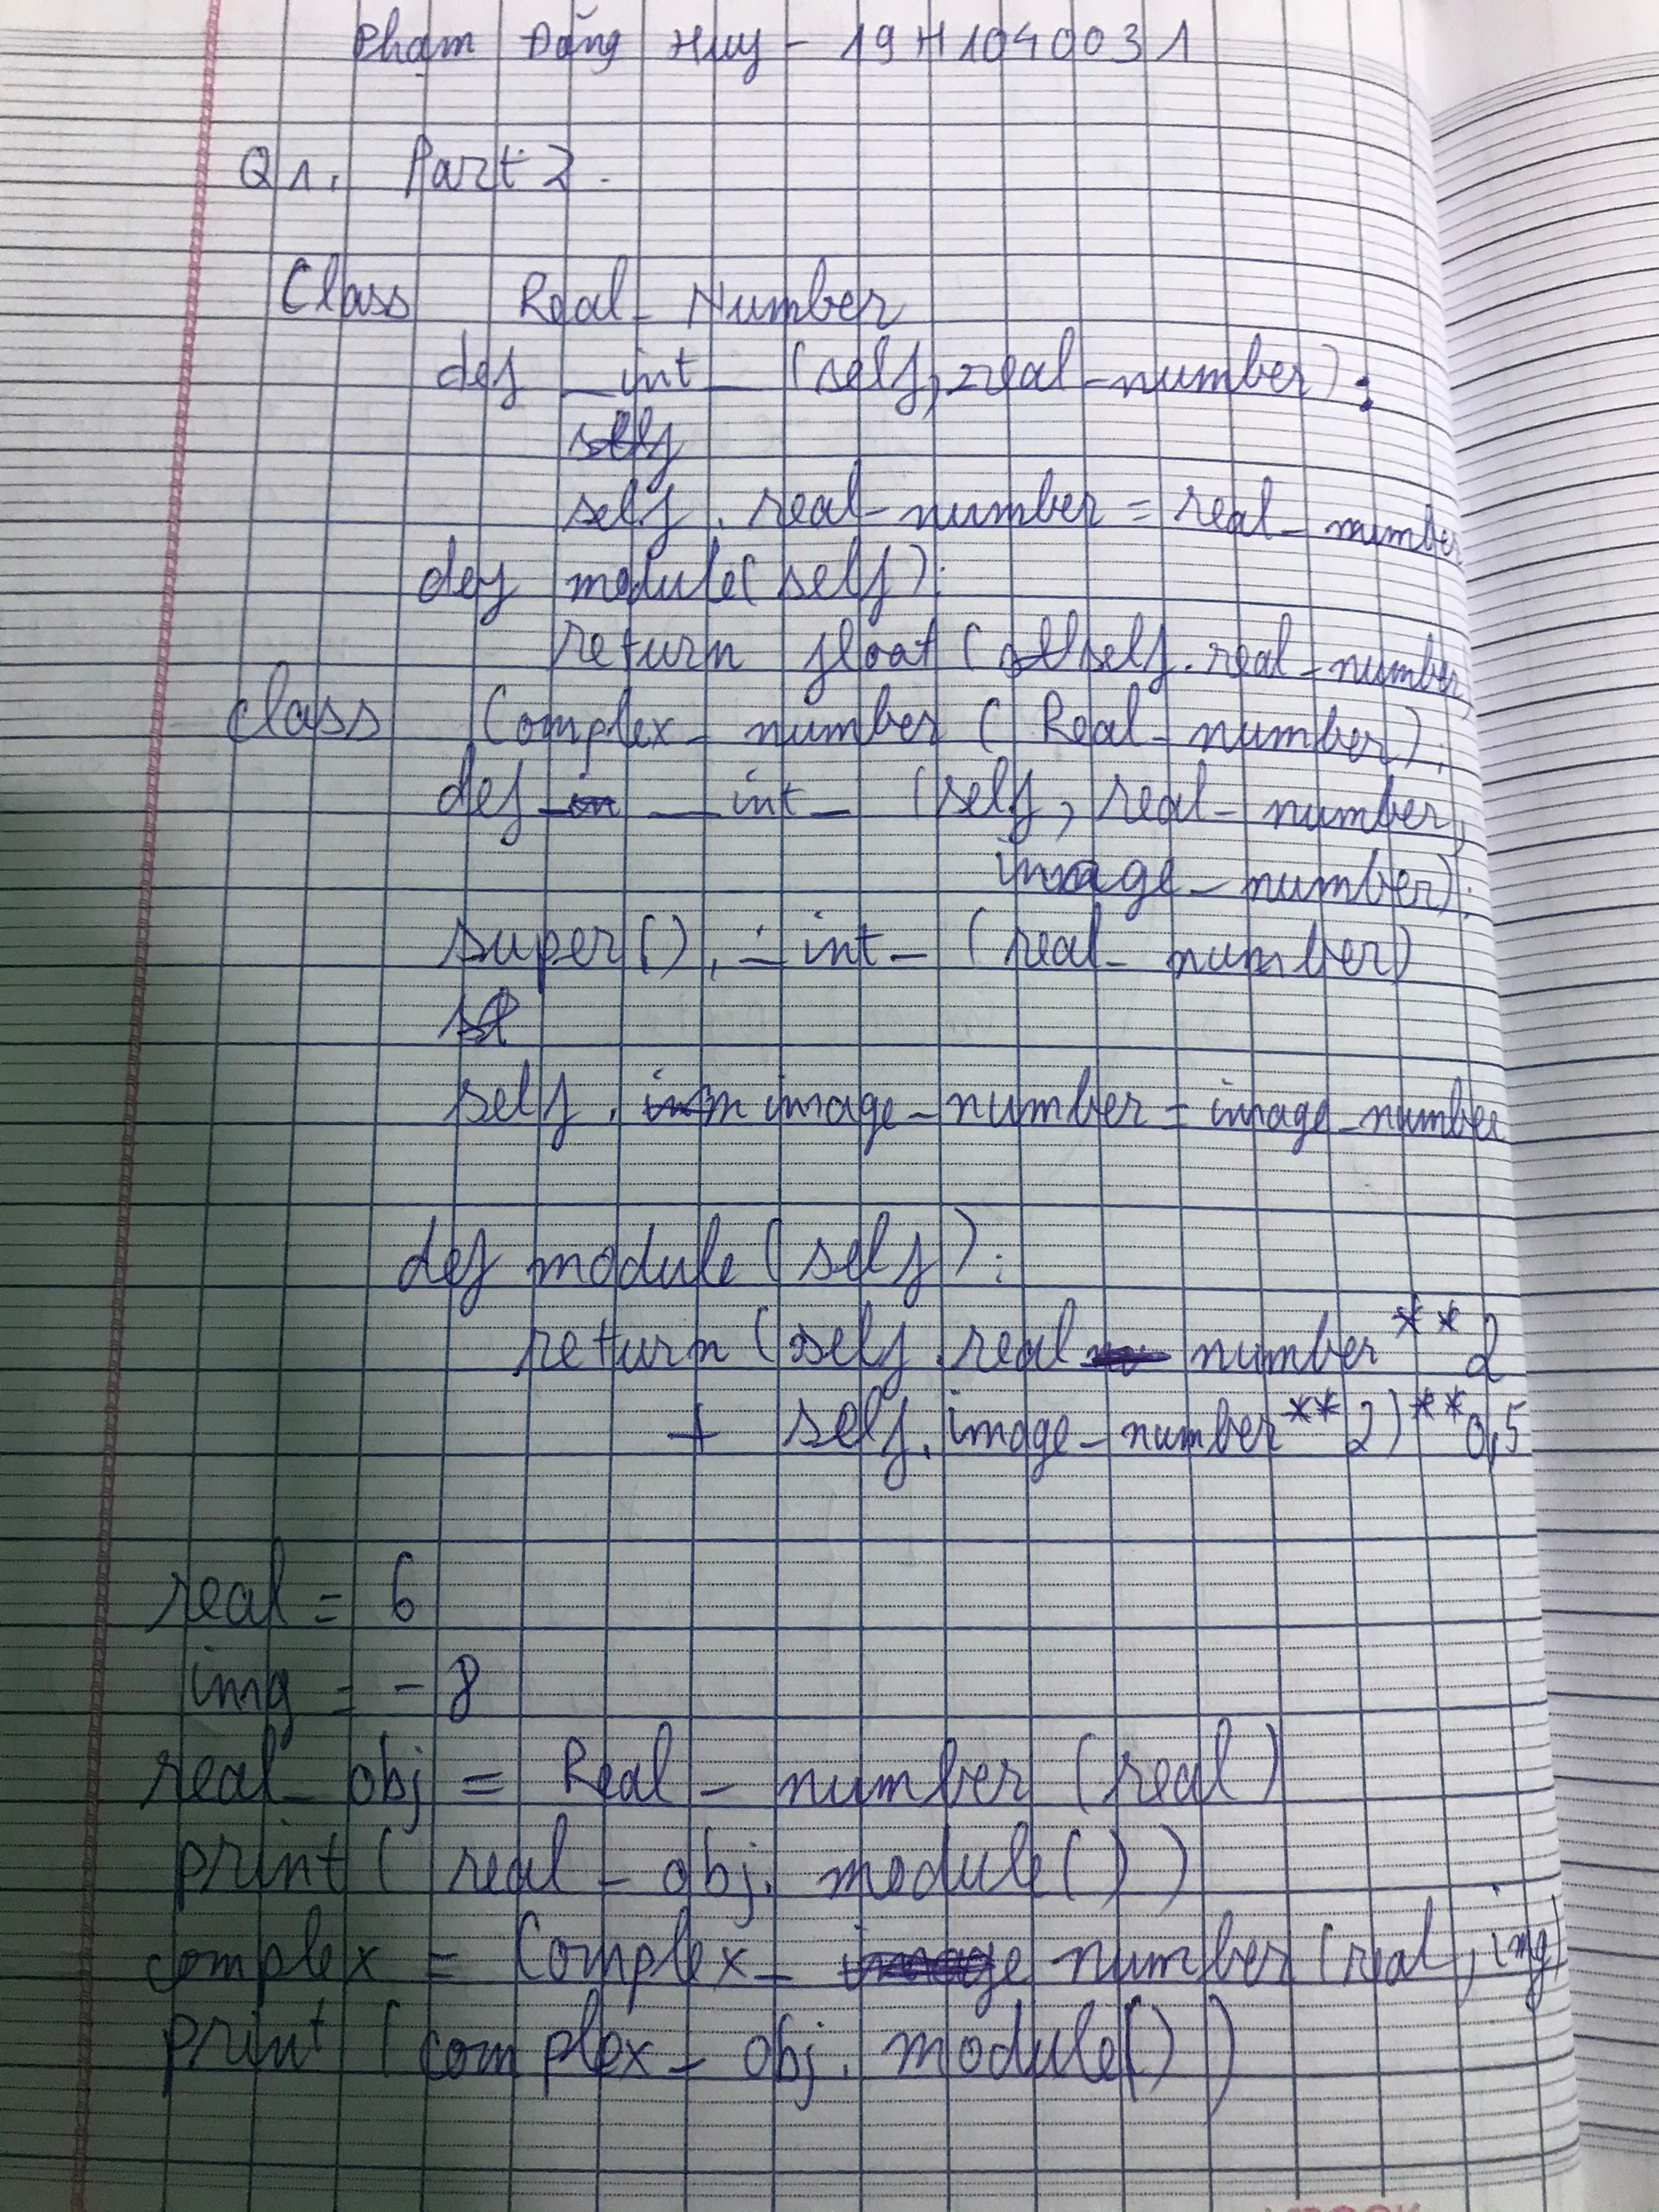 Phạm Đăng Huy - 19H1040031
Q1. Part 2.
Class Real_Number
def _int_ (self, real_number):
self
self.real_number = real_number
def module(self):
return float(self.real_number
class Complex_number (Real_number):
def __int_ (self, real_number,
image_number):
super()._int_ (real_number)
self.image_number = image_number
def module(self):
return (self.real number**2
+ self.image_number**2)**0,5
real = 6
img = -8
real_obj = Real_number(real)
print(real_obj.module())
complex = Complex_number(real, img)
print(complex_obj.module())